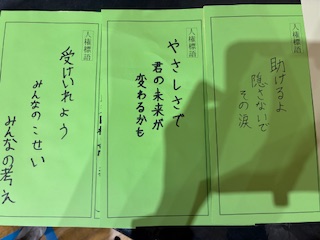 人権標語
助けるよ
隠さないで
その涙
人権標語
やさしさで
君の未来が
変わるかも
人権標語
受けいれよう
みんなのこせい
みんなの考え